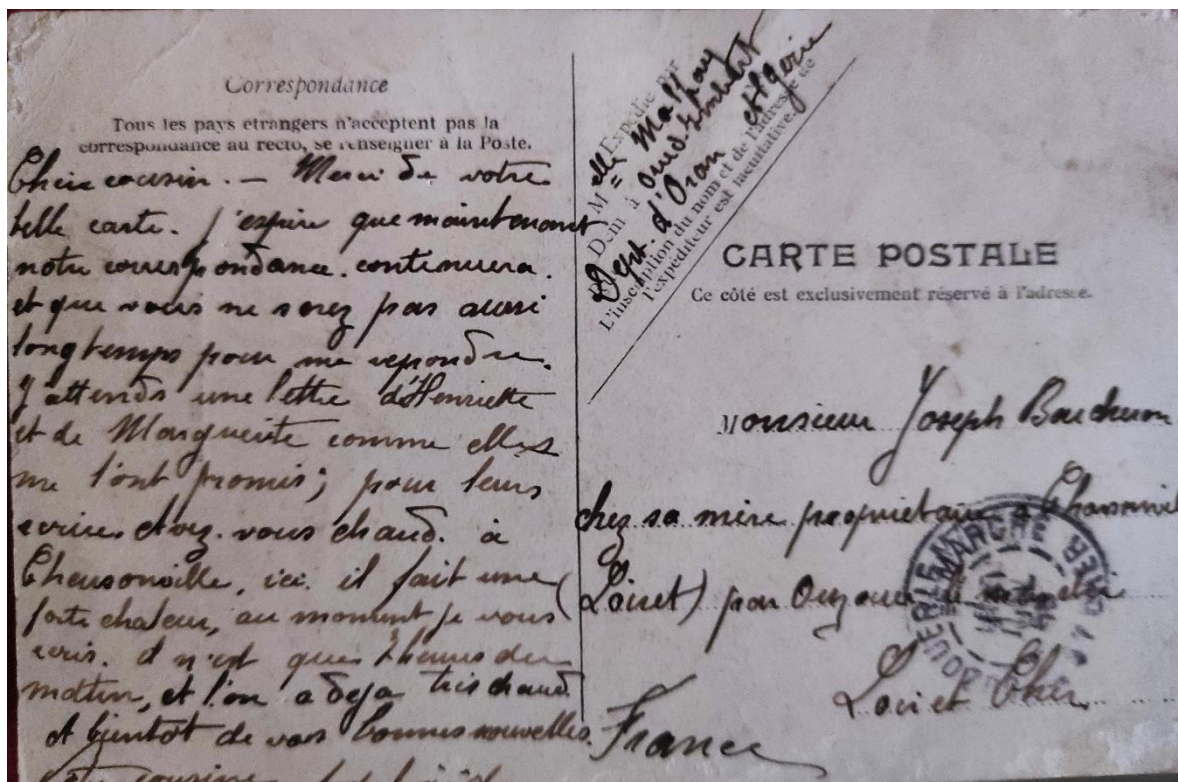 Correspondance
Tous les pays etrangers n'acceptent pas la
correspondance au recto, se renseigner à la Poste.
Cher cousin. — Merci de votre
belle carte. J'espère que maintenant
notre correspondance. continuera.
et que vous ne serez pas aussi
longtemps pour me repondre.
J'attends une lettre d'Henriette
et de Marguerite comme elles
me l'ont promis; pour leurs
ecrire. Avez. vous chaud. à
Chausonville, ici. il fait une
forte chaleur, au moment je vous
ecris. il n'est que heures du
matin, et l'on a deja tres chaud
A bientot de vos bonnes nouvelles.
cousine
Expédié par
Melle
Dem à
Dept. d'Oran Algerie
L'inscription du nom et de l'adresse de
l'expéditeur est facultative.
CARTE POSTALE
Ce côté est exclusivement réservé à l'adresse.
Monsieur Joseph
chez sa mère proprietaire à
(Loiret) par Ouzouer le
Loir et Cher
France
MARCHE
CHER